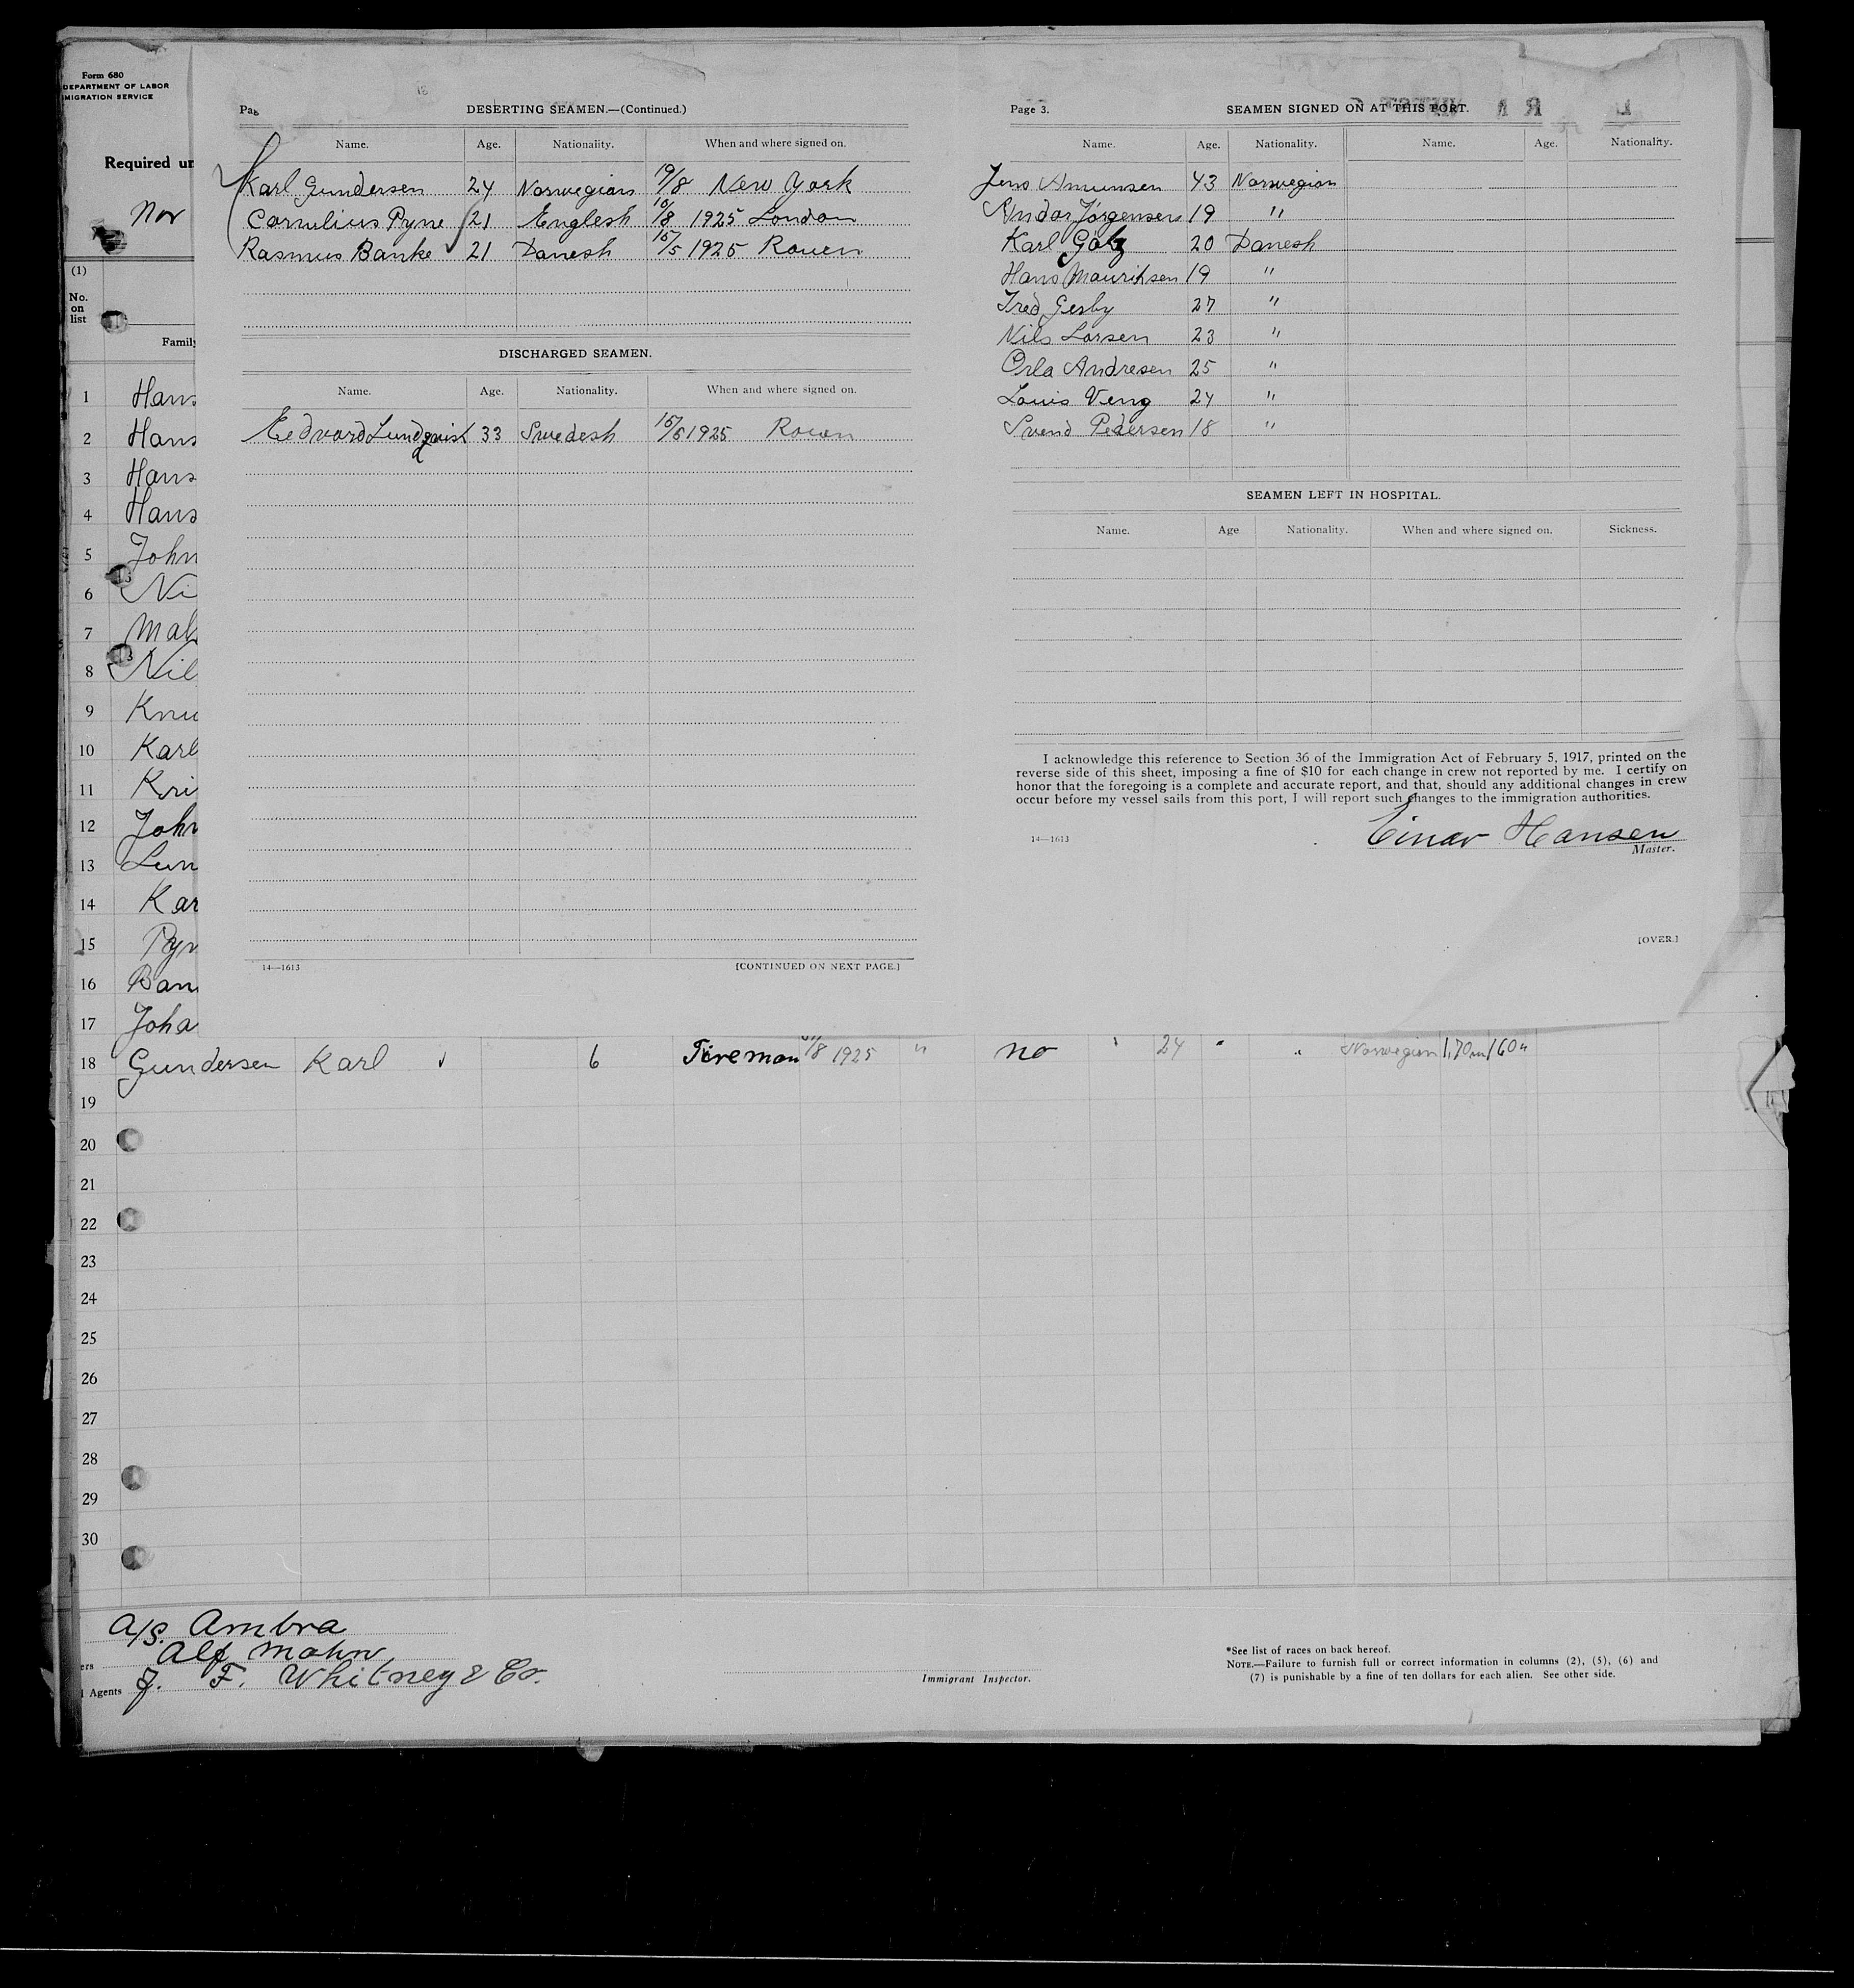 Form 680
DEPARTMENT OF LABOR
MIGRATION SERVICE
Required un
Nor
(1)
No.
on
list
Family
1 Hans
2 Hans
3 Hans
4 Hans
5 John
6 Ni
7 Mal
8 Nil
9 Knu
10 Karl
11 Kri
12 John
13 Lun
14 Kar
15 Pyn
16 Ban
17 Joha
Pag
DESERTING SEAMEN.—(Continued.)
Name. Age. Nationality. When and where signed on.
Karl Gundersen 24 Norwegian 19/8 New York
Cornelius Pyne 21 Englesh 10/8 1925 London
Rasmus Banke 21 Danesh 15/5 1925 Rouen
DISCHARGED SEAMEN.
Name. Age. Nationality. When and where signed on.
Eedvard Lundqvist 33 Swedesh 15/5 1925 Rouen
14—1613 [CONTINUED ON NEXT PAGE.]
Page 3. SEAMEN SIGNED ON AT THIS PORT.
Name. Age. Nationality. Name. Age. Nationality.
Jens Amunsen 43 Norwegian
Andor Jörgensen 19 "
Karl Götz 20 Danesh
Hans Mauritsen 19 "
Fred Gesby 27 "
Nils Larsen 23 "
Orla Andresen 25 "
Louis Veng 24 "
Svend Pedersen 18 "
SEAMEN LEFT IN HOSPITAL.
Name. Age Nationality. When and where signed on. Sickness.
I acknowledge this reference to Section 36 of the Immigration Act of February 5, 1917, printed on the
reverse side of this sheet, imposing a fine of $10 for each change in crew not reported by me. I certify on
honor that the foregoing is a complete and accurate report, and that, should any additional changes in crew
occur before my vessel sails from this port, I will report such changes to the immigration authorities.
Einar Hansen
14—1613
Master.
[OVER.]
18 Gundersen Karl 6 Fireman /8 1925 " no " 24 " " Norwegian 1,70m 160"
19
20
21
22
23
24
25
26
27
28
29
30
A/S. Ambra
ers Alf Mohn
l Agents J. F. Whitney & Co.
Immigrant Inspector.
*See list of races on back hereof.
NOTE.—Failure to furnish full or correct information in columns (2), (5), (6) and
(7) is punishable by a fine of ten dollars for each alien. See other side.